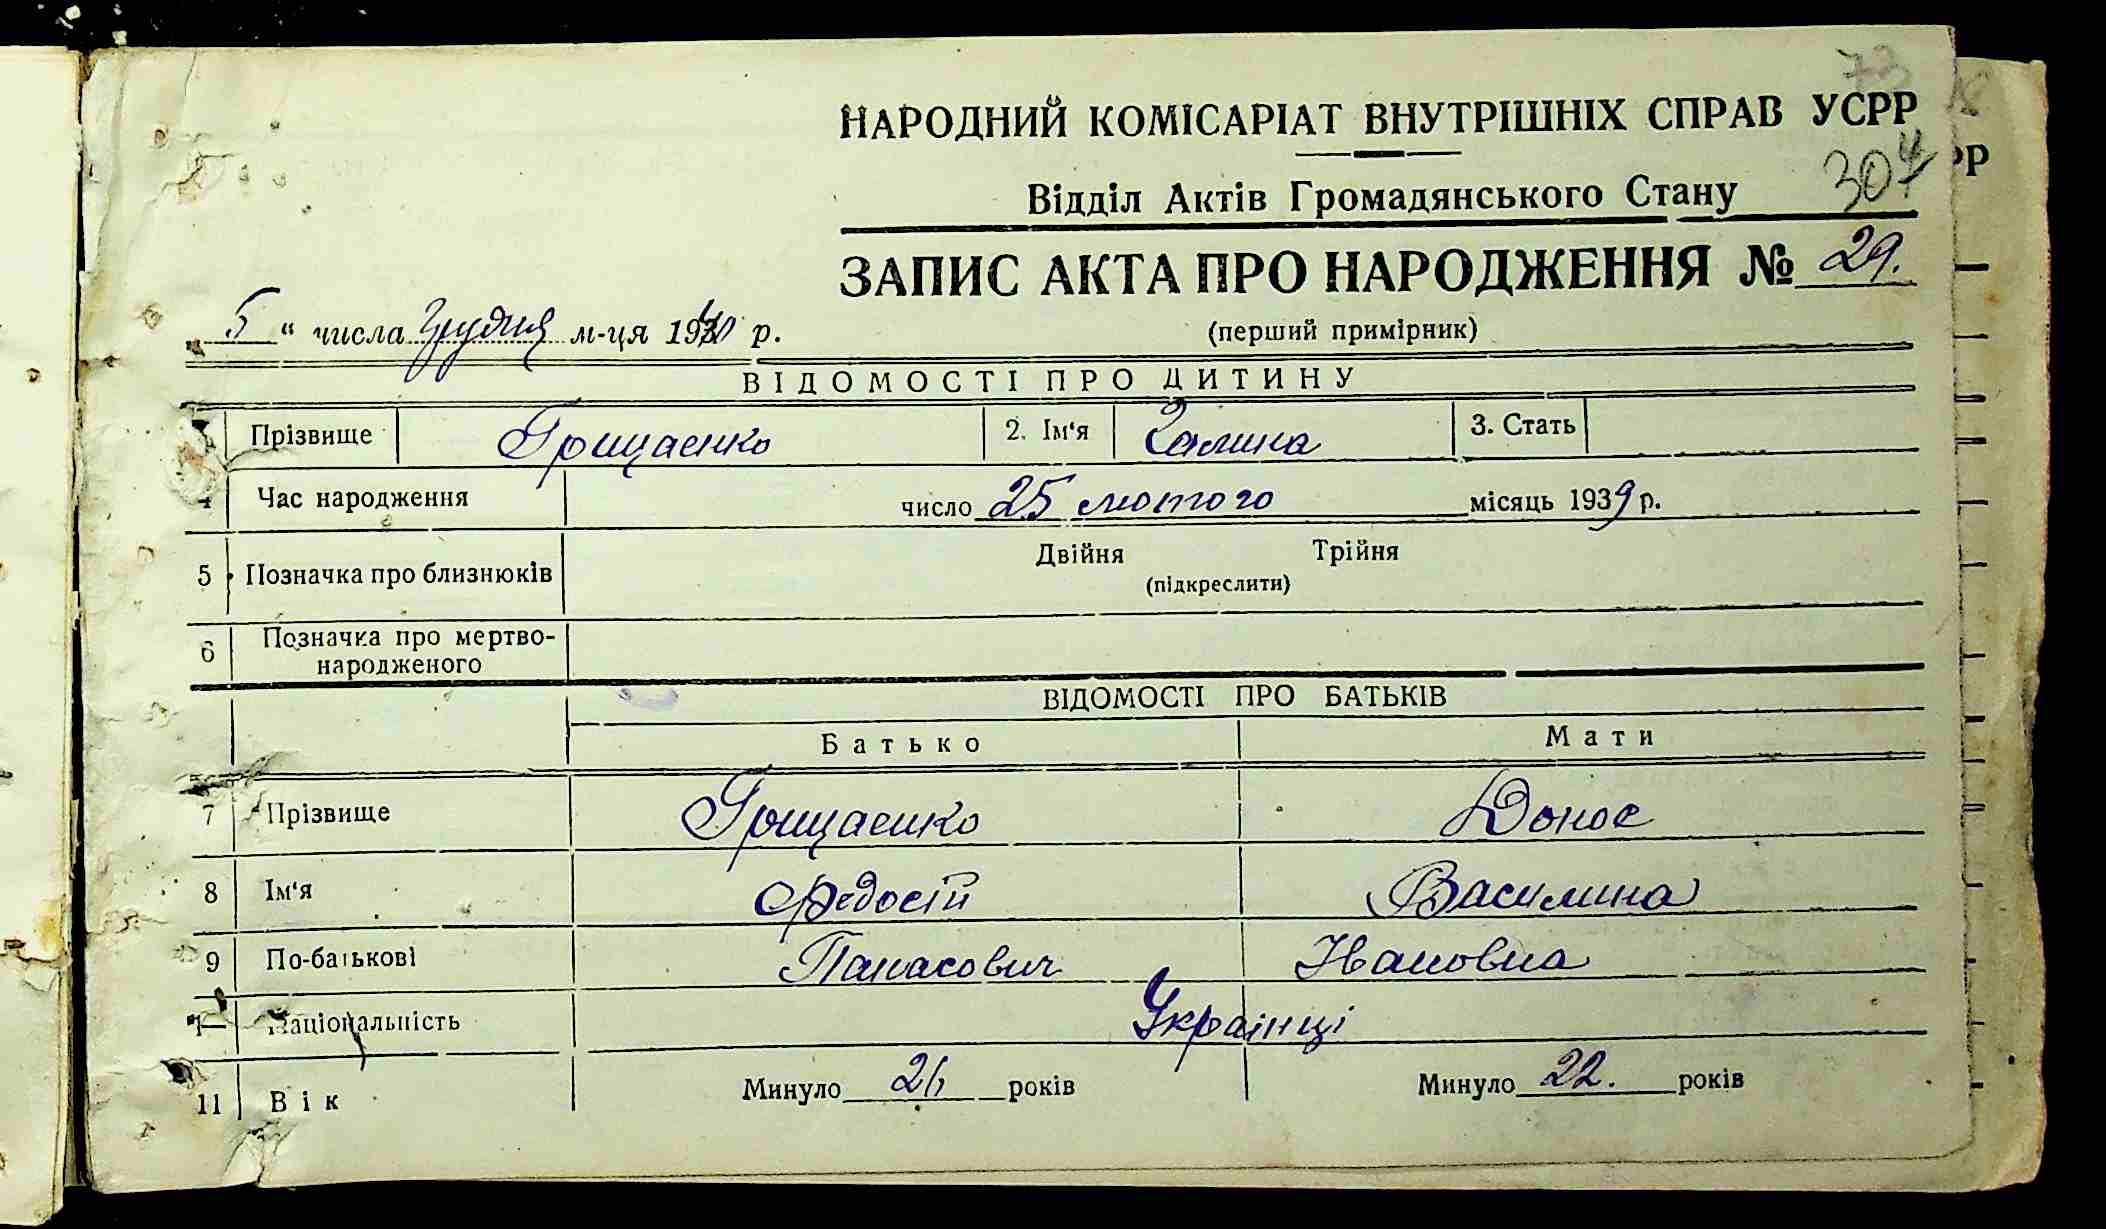 73
НАРОДНИЙ КОМІСАРІАТ ВНУТРІШНІХ СПРАВ УСРР
304
Відділ Актів Громадянського Стану
ЗАПИС АКТА ПРО НАРОДЖЕННЯ № 29.
„ 5 “ числа Грудня м-ця 1940 р.
(перший примірник)
ВІДОМОСТІ ПРО ДИТИНУ
Прізвище Грищаєнко 2. Ім‘я Галина 3. Стать
4 Час народження число 25 лютого місяць 1939 р.
5 Позначка про близнюків Двійня Трійня
(підкреслити)
6 Позначка про мертво-
народженого
ВІДОМОСТІ ПРО БАТЬКІВ
Батько Мати
7 Прізвище Грищаенко Донос
8 Ім‘я Федосій Василина
9 По-батькові Панасович Івановна
Національність Українці
11 Вік Минуло 26 років Минуло 22. років